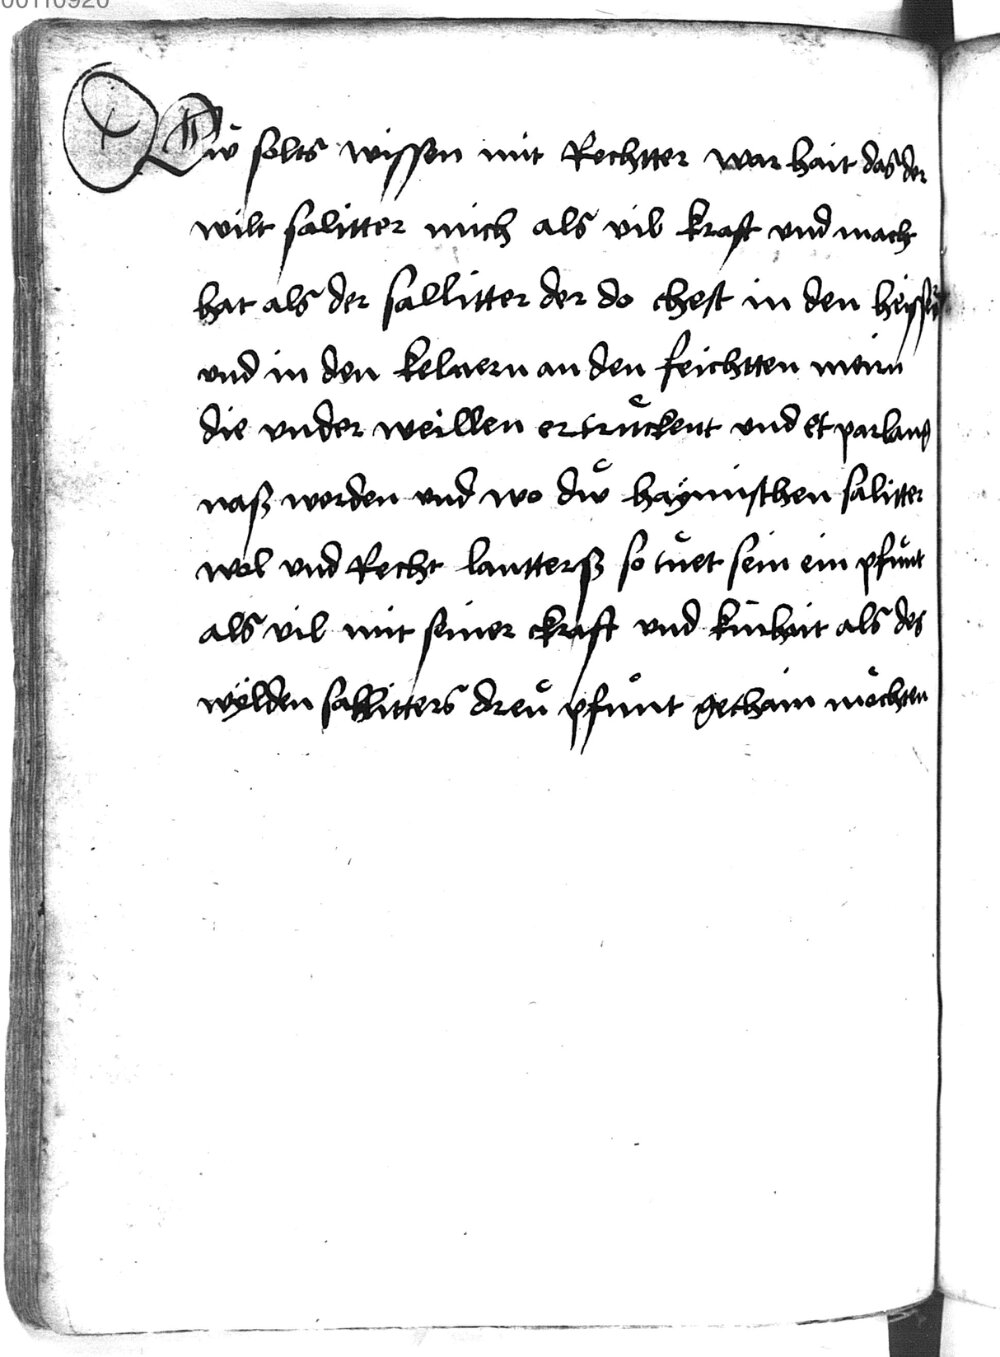 00110920
Dẘ solts wissen mit Rechtter warhait das der
wilt salitter nuͤch als vil kraft vnd mach
hat als der sallitter der do chest in den heẏssern
vnd in den kelnern an den feichtten meirn
die vnder weillen ertruͤckent vnd et parlang
naß werden vnd wo dẘ haẏmischen salitter
wol vnd Recht lautterß so tuͤet sein ein pfuͤnt
als vil mit seiner ckraft vnd kuͤnhait als des
wẏlden sallitters dreuͤ pfuͤnt gethain moͤchten